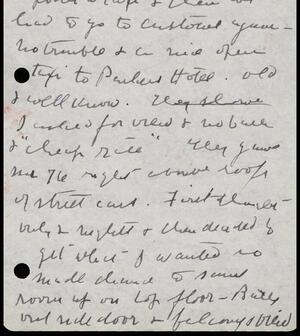 had to go to customs again –
no trouble & a nice open
taxi to Parkers Hotel. old
& well know. They showe
I asked for view & no bath
& "cheap rate" They gave
me the right above roofs
of street cars. First
only 2 nights & then decided to
get what I wanted so
made change to same
room up on top floor –
out side door & balcony